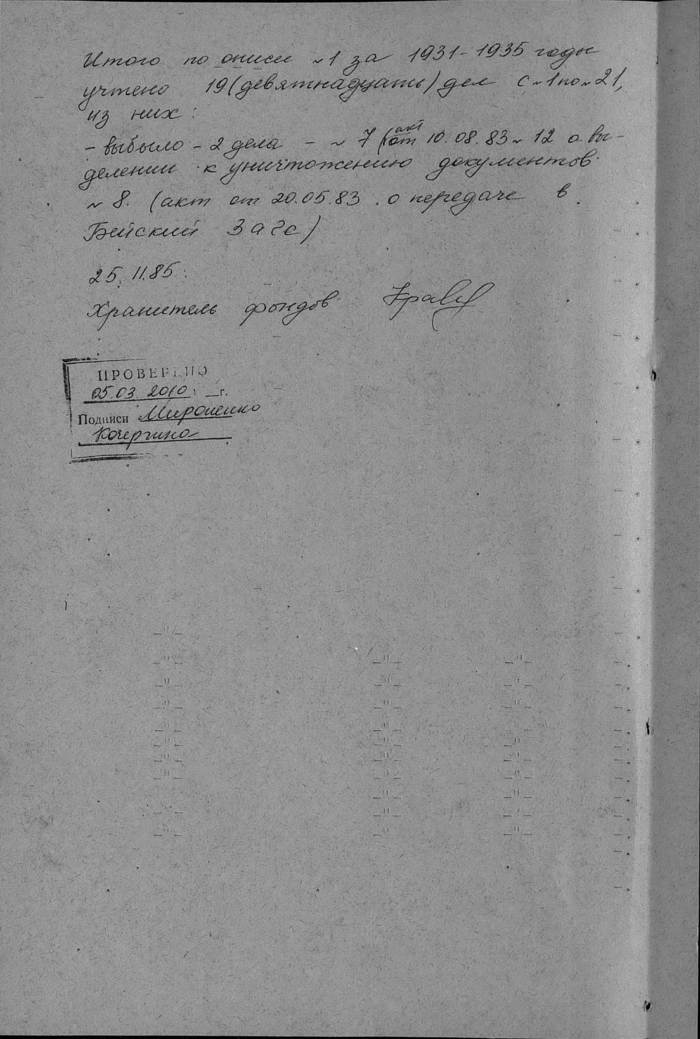 Итого по описи №1 за 1931-1935 годы
учтено 19 (девятнадцать) дел с №1 по №21,
из них:
- выбыло - 2 дела - № 7 (акт от 10.08.83 № 12 о вы-
делении к уничтожению документов
№ 8. (акт от 20.05.83. о передаче в
Бейский Загс)
25.11.85.
Хранитель фондов
ПРОВЕРЕНО
05.03 2010 г.
Подписи Мироненко
Кочергина